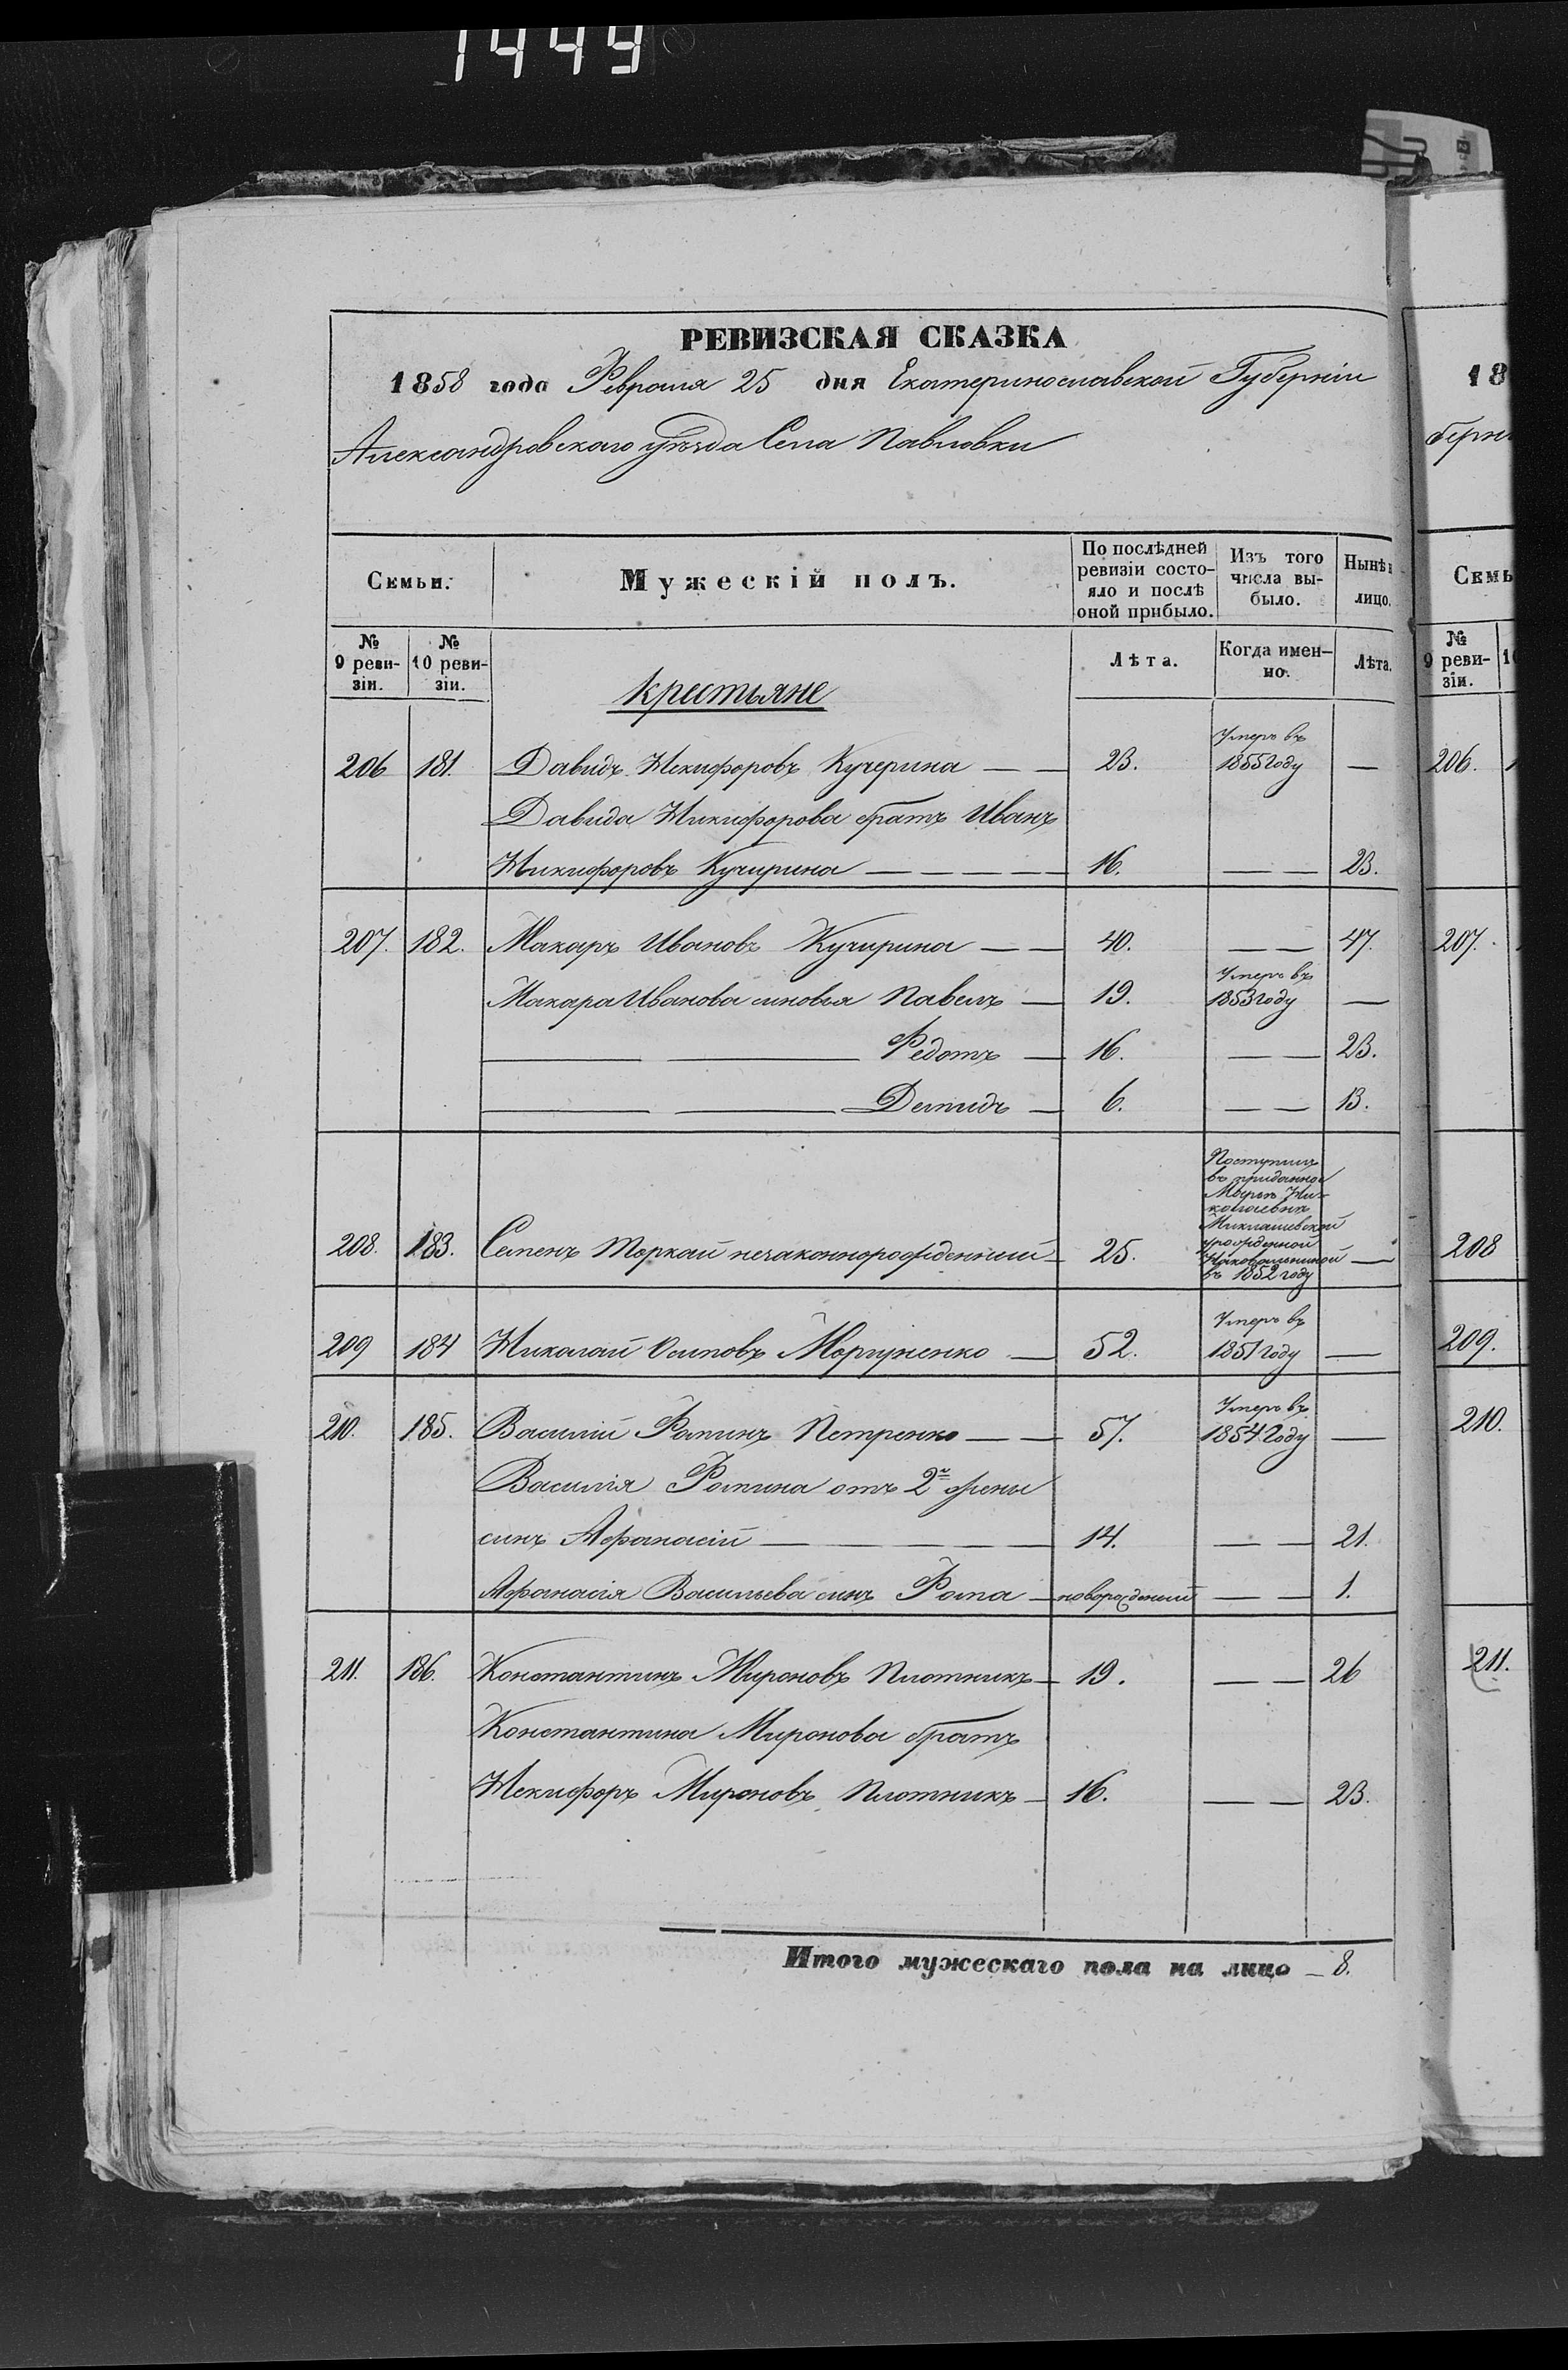 1449
РЕВИЗСКАЯ СКАЗКА
1858 года Февраля 25 дня Екатеринославской Губерніи
Александровскаго уѣзда Села Павловки
Семьи. Мужескій полъ. По послѣдней ревизіи состояло и послѣ оной прибыло. Изъ того числа выбыло. Нынѣ лицо.
№ 9 ревизіи. № 10 ревизіи. Лѣта. Когда именно. Лѣта.
крестьяне
206 181. Давидъ Некифоровъ Кучерина — — 23. Умеръ въ 1855 году —
Давида Никифорова братъ Иванъ
Никифоровъ Кучирина — — — — — 16. — — 23.
207. 182. Макаръ Ивановъ Кучирина — — 40. — — 47.
Макара Иванова синовья Павелъ — 19. Умеръ въ 1853 году —
— — Федотъ — 16. — — 23.
— — Демидъ — 6. — — 13.
208. 183. Семенъ Моркай незаконнорожденный — 25. Поступилъ въ приданное Марьи Николаевны Миклашевской урожденной въ 1852 году —
209 184 Николай Осиповъ Моргуненко — 52. Умеръ въ 1851 году —
210. 185. Василій Фоминъ Петренко — — 57. Умеръ въ 1854 году —
Василія Фомина отъ 2й жены
синъ Афанасій — — — — — 14. — — 21.
Афанасія Васильева синъ Фома — новорожденый — — 1.
211. 186. Константинъ Мироновъ Плотникъ — 19. — — 26
Константина Миронова братъ
Некифоръ Мироновъ Плотникъ — 16. — — 23.
Итого мужескаго пола на лицо — 8.
18
берні
Семь
№ 9 ревизіи.
206.
207.
208
209.
210.
211.